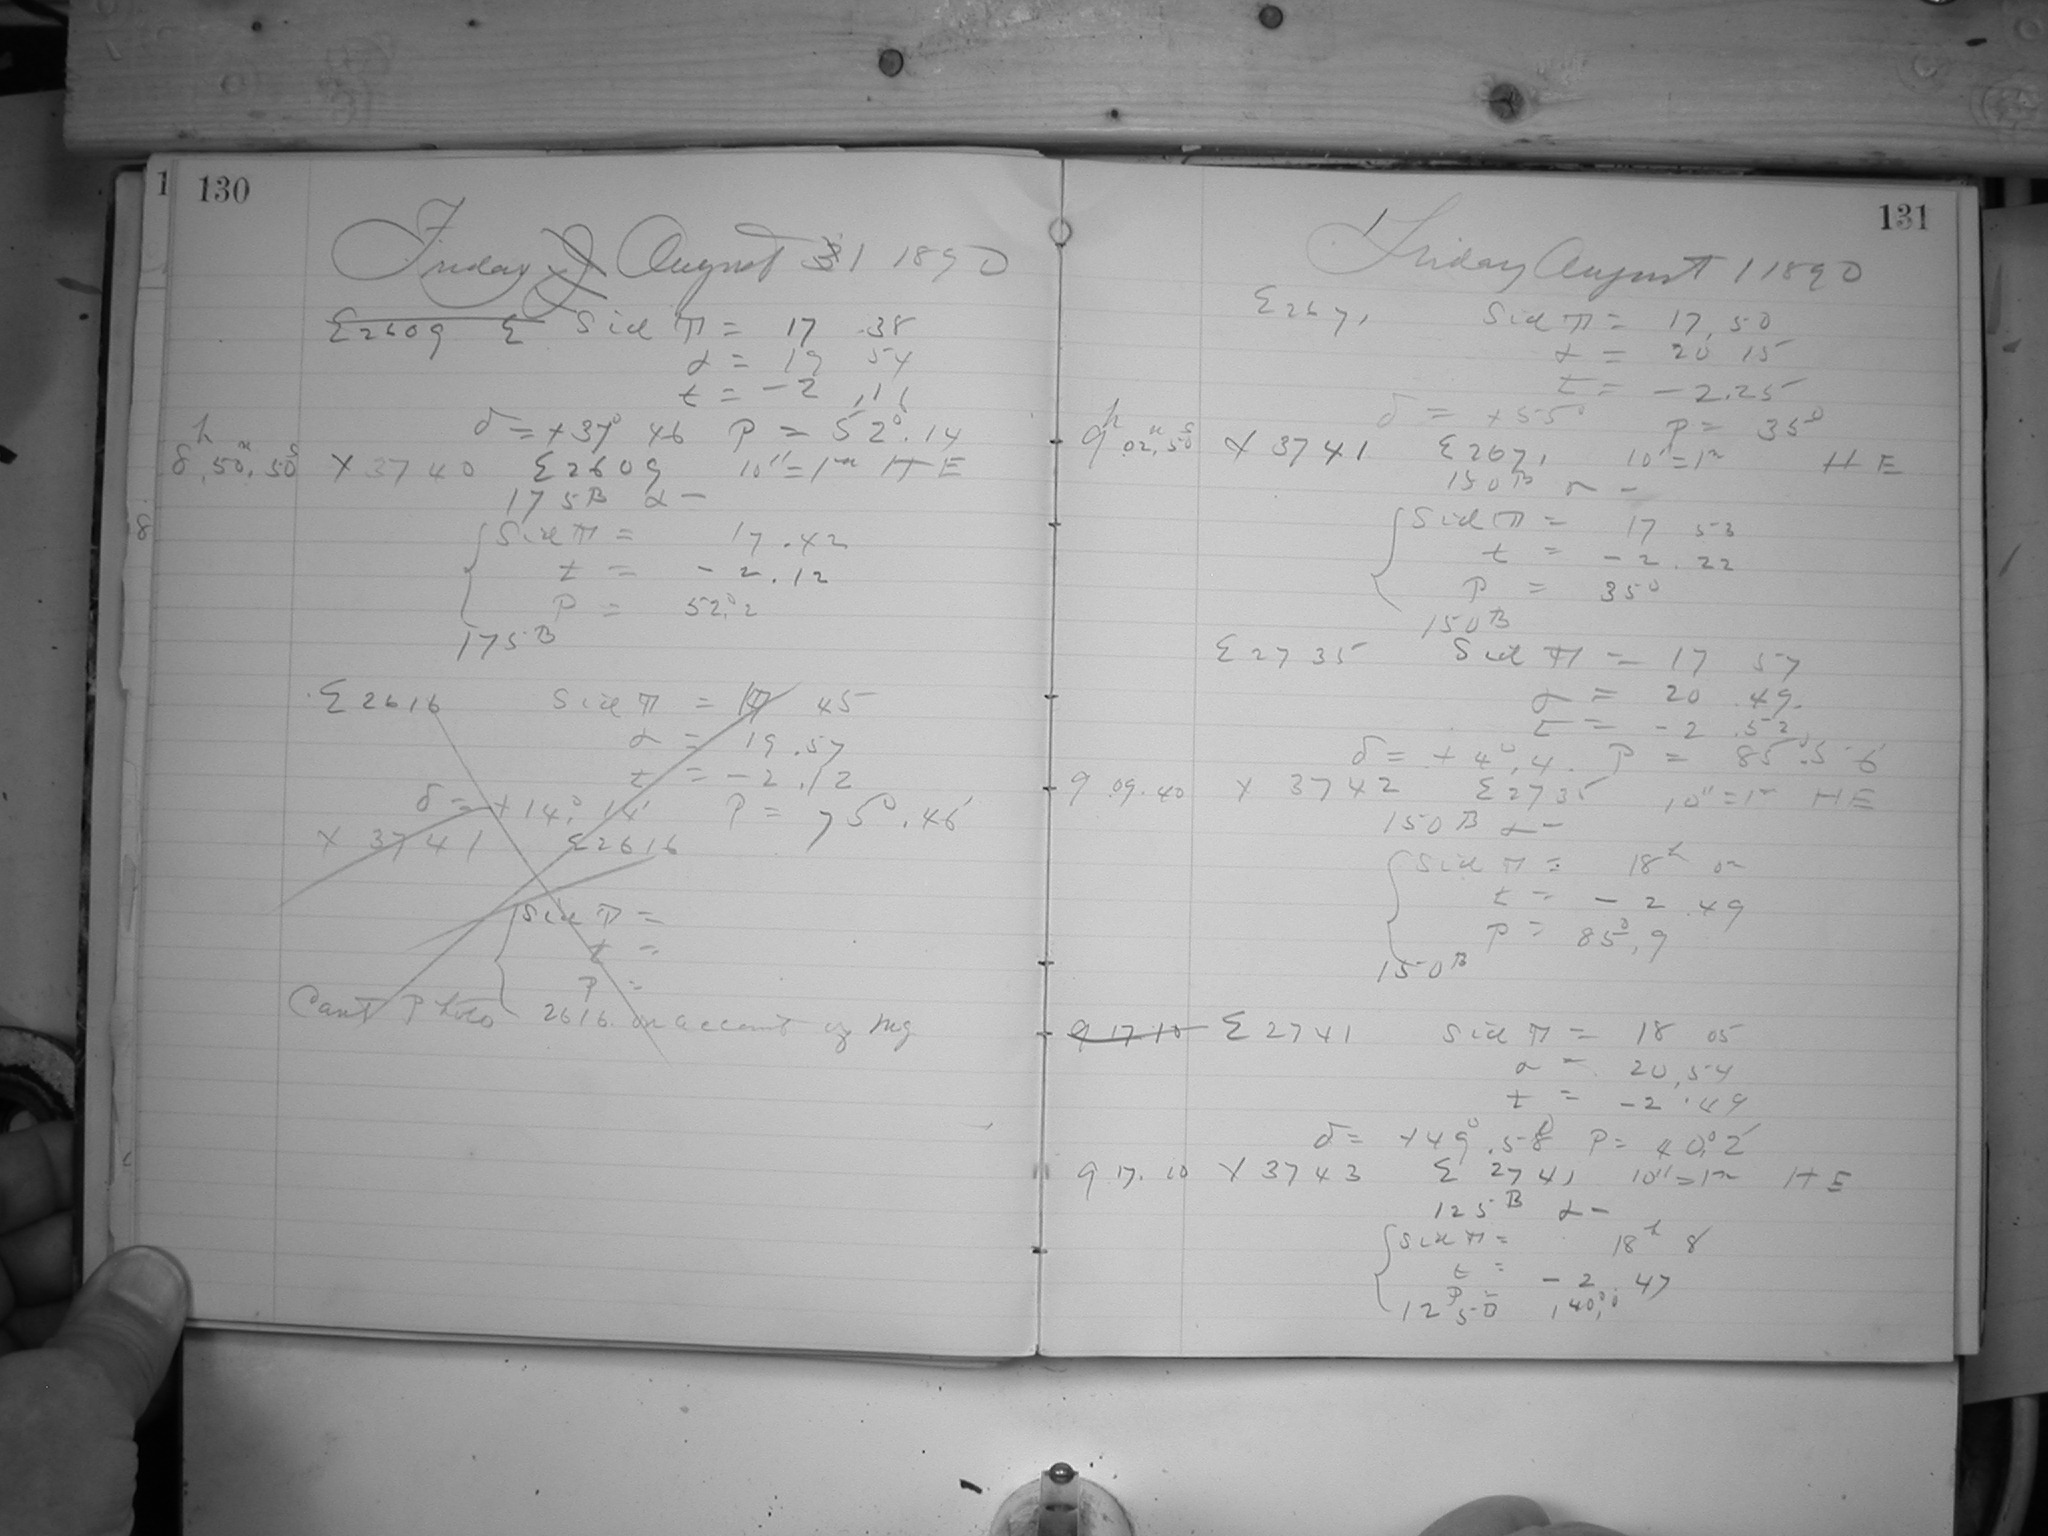 130
Friday August 1 1890
Σ2609 Σ Sid T = 17 38
α = 19 54
t = -2 .16
δ = +37° 46 P = 52°.14
8h.50m.50s X 3740 Σ2609 10" = 1m HE
175B α-
Sid T = 17.42
t = -2.12
P = 52°.2
175B
Σ2616 Sid T = 17 45
α = 19.57
t = -2.12
δ = +14°.14' P = 75°.46'
X 3741 Σ2616
Sid T =
t =
P =
Cant Photo 2616 on account of mg
131
Friday August 1 1890
Σ2671 Sid T = 17.50
α = 20 15
t = -2.25
δ = +55° P = 35°
9h.02m.50s X 3741 Σ2671 10" = 1m HE
150B α -
Sid T = 17 53
t = -2.22
P = 35°
150B
Σ2735 Sid T = 17 57
α = 20.49
t = -2.52
δ = +4°.4 P = 85°.56'
9.09.40 X 3742 Σ2735 10" = 1m HE
150B α-
Sid T = 18h 0m
t = -2.49
P = 85°.9
150B
9 17 10 Σ2741 Sid T = 18 05
α = 20.54
t = -2.49
δ = +49°.58 P = 40°.2'
9 17.10 X 3743 Σ 2741 10" = 1m HE
125B α-
Sid T = 18h 8
t = -2.47
P = 40°.0
125B